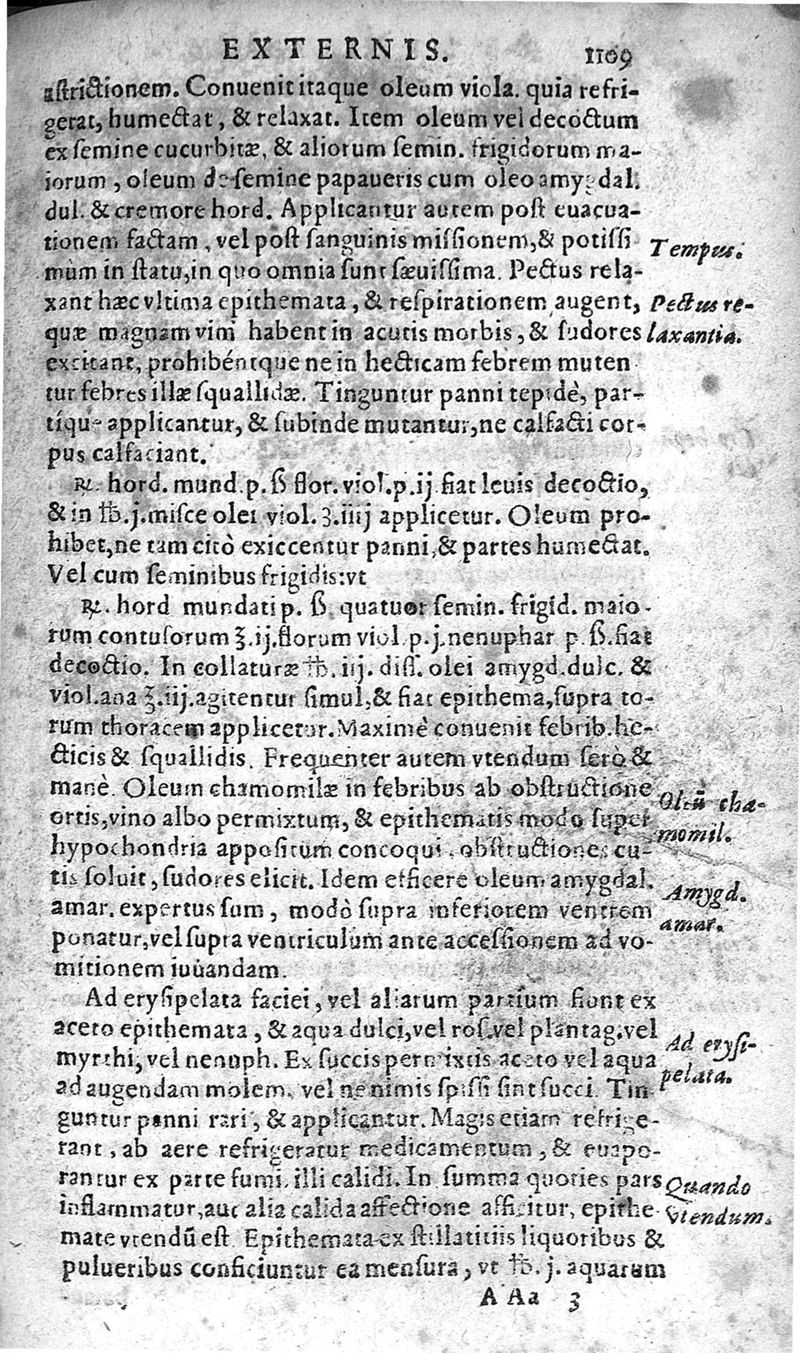 EXTERNIS. 1109
astrictionem. Conuenit itaque oleum viola. quia refri-
gerat, humectat, & relaxat. Item oleum vel decoctum
ex semine cucurbitæ, & aliorum semin. frigidorum ma-
iorum, oleum de semine papaueris cum oleo amygdal.
dul. & cremore hord. Applicantur autem post euacua-
tionem factam, vel post sanguinis missionem, & potissi
mùm in statu, in quo omnia sunt sæuissima. Pectus rela-
Tempus.
xant hæc vltima epithemata, & respirationem augent,
Pectus re-
quæ magnam vim habent in acutis morbis, & sudores
laxantia.
excitant, prohibéntque ne in hecticam febrem muten
tur febres illæ squallidæ. Tinguntur panni tepidè, par-
tíque applicantur, & subinde mutantur, ne calfacti cor-
pus calfaciant.
℞. hord. mund. p. ß flor. viol. p. ij. fiat leuis decoctio,
& in ℔. j. misce olei viol. ℥. iiij applicetur. Oleum pro-
hibet, ne tam citò exiccentur panni, & partes humectat.
Vel cum seminibus frigidis: vt
℞. hord mundati p. ß. quatuor semin. frigid. maio-
rum contusorum ℥. ij. florum viol. p. j. nenuphar p. ß. fiat
decoctio. In collaturæ ℔. iij. diss. olei amygd. dulc. &
viol. ana ℥. iij. agitentur simul, & fiat epithema, supra to-
rum thoracem applicetur. Maximè conuenit febrib. he-
cticis & squallidis. Frequenter autem vtendum serò &
manè. Oleum chamomilæ in febribus ab obstructione
Oleū cha-
ortis, vino albo permixtum, & epithematis modo super
momil.
hypochondria appositum concoqui, obstructiones cu-
tis soluit, sudores elicit. Idem efficere oleum amygdal.
Amygd.
amar. expertus sum, modò supra inferiorem ventrem
amar.
ponatur, vel supra ventriculum ante accessionem ad vo-
mitionem iuuandam.
Ad erysipelata faciei, vel aliarum partium fiont ex
aceto epithemata, & aqua dulci, vel ros. vel plantag. vel
Ad erysi-
myrthi, vel nenuph. Ex succis permixtis aceto vel aqua
pelata.
ad augendam molem, vel ne nimis spissi sint succi. Tin-
guntur panni rari, & applicantur. Magis etiam refrige-
rant, ab aere refrigeratur medicamentum, & euapo-
rantur ex parte fumi illi calidi. In summa quoties pars
Quando
inflammatur, aut alia calida affectione afficitur, epithe-
vtendum.
mate vtendū est. Epithemata ex stillatitiis liquoribus &
pulueribus conficiuntur ea mensura, vt ℔. j. aquarum
A Aa 3